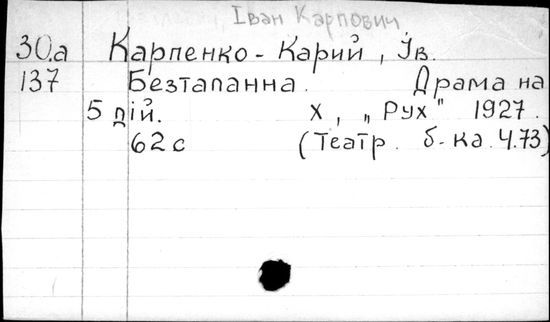 Іван Карпович
30.а Карпенко-Карий, Ів.
137 Безтапанна. Драма на
5 дій. Х, „Рух" 1927.
62 с (Театр. б-ка. Ч.73)